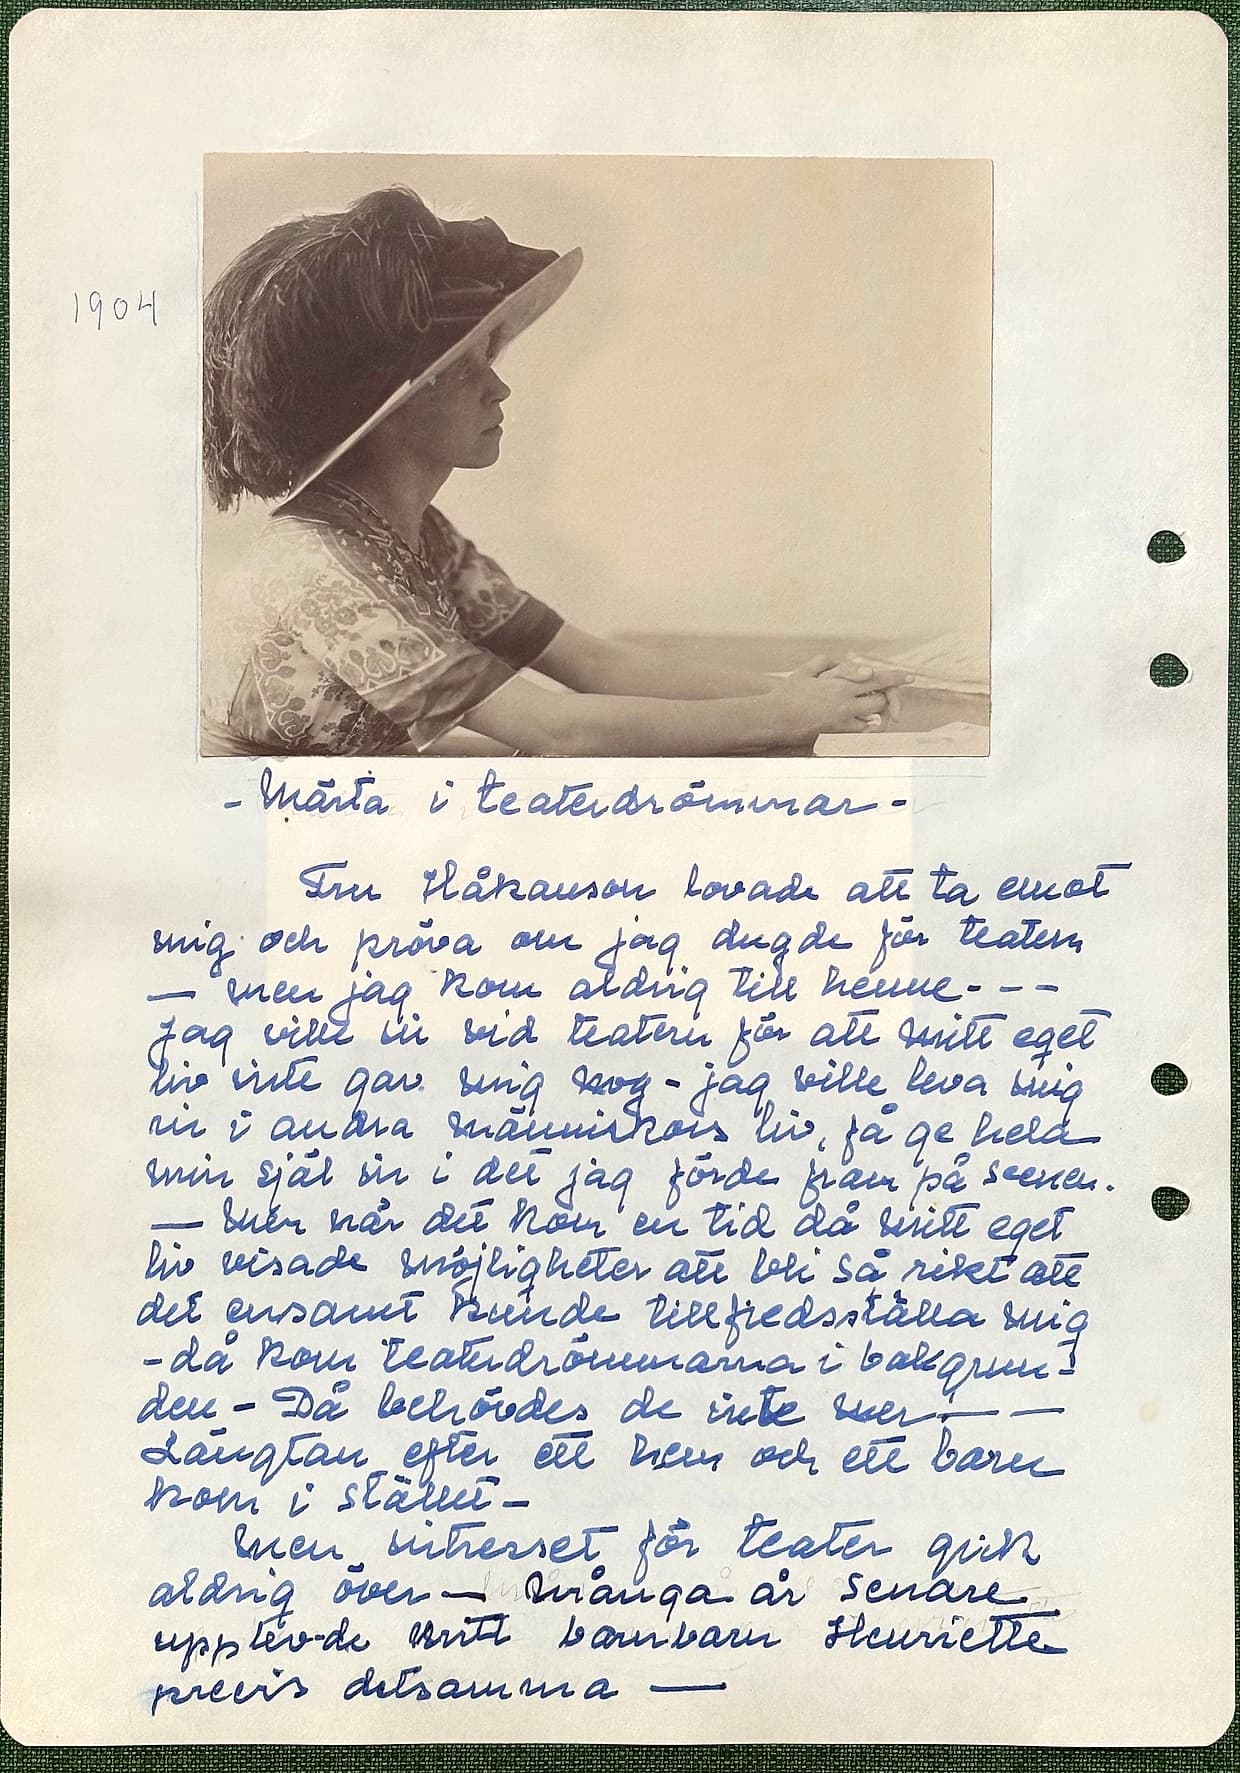 1904
- Märta i teaterdrömmar -
Fru Håkanson lovade att ta emot
mig och pröva om jag dugde för teatern
— men jag kom aldrig till henne - - -
Jag ville in vid teatern för att mitt eget
liv inte gav mig nog - jag ville leva mig
in i andra människors liv, få ge hela
min själ in i det jag förde fram på scenen.
— Men när det kom en tid då mitt eget
liv visade möjligheter att bli så rikt att
det ensamt kunde tillfredsställa mig
- då kom teaterdrömmarna i bakgrun-
den - Då behövdes de inte mer — —
Längtan efter ett hem och ett barn
kom i stället -
Men intresset för teater gick
aldrig över — många år senare
upplevde mitt barnbarn Henriette
precis detsamma —